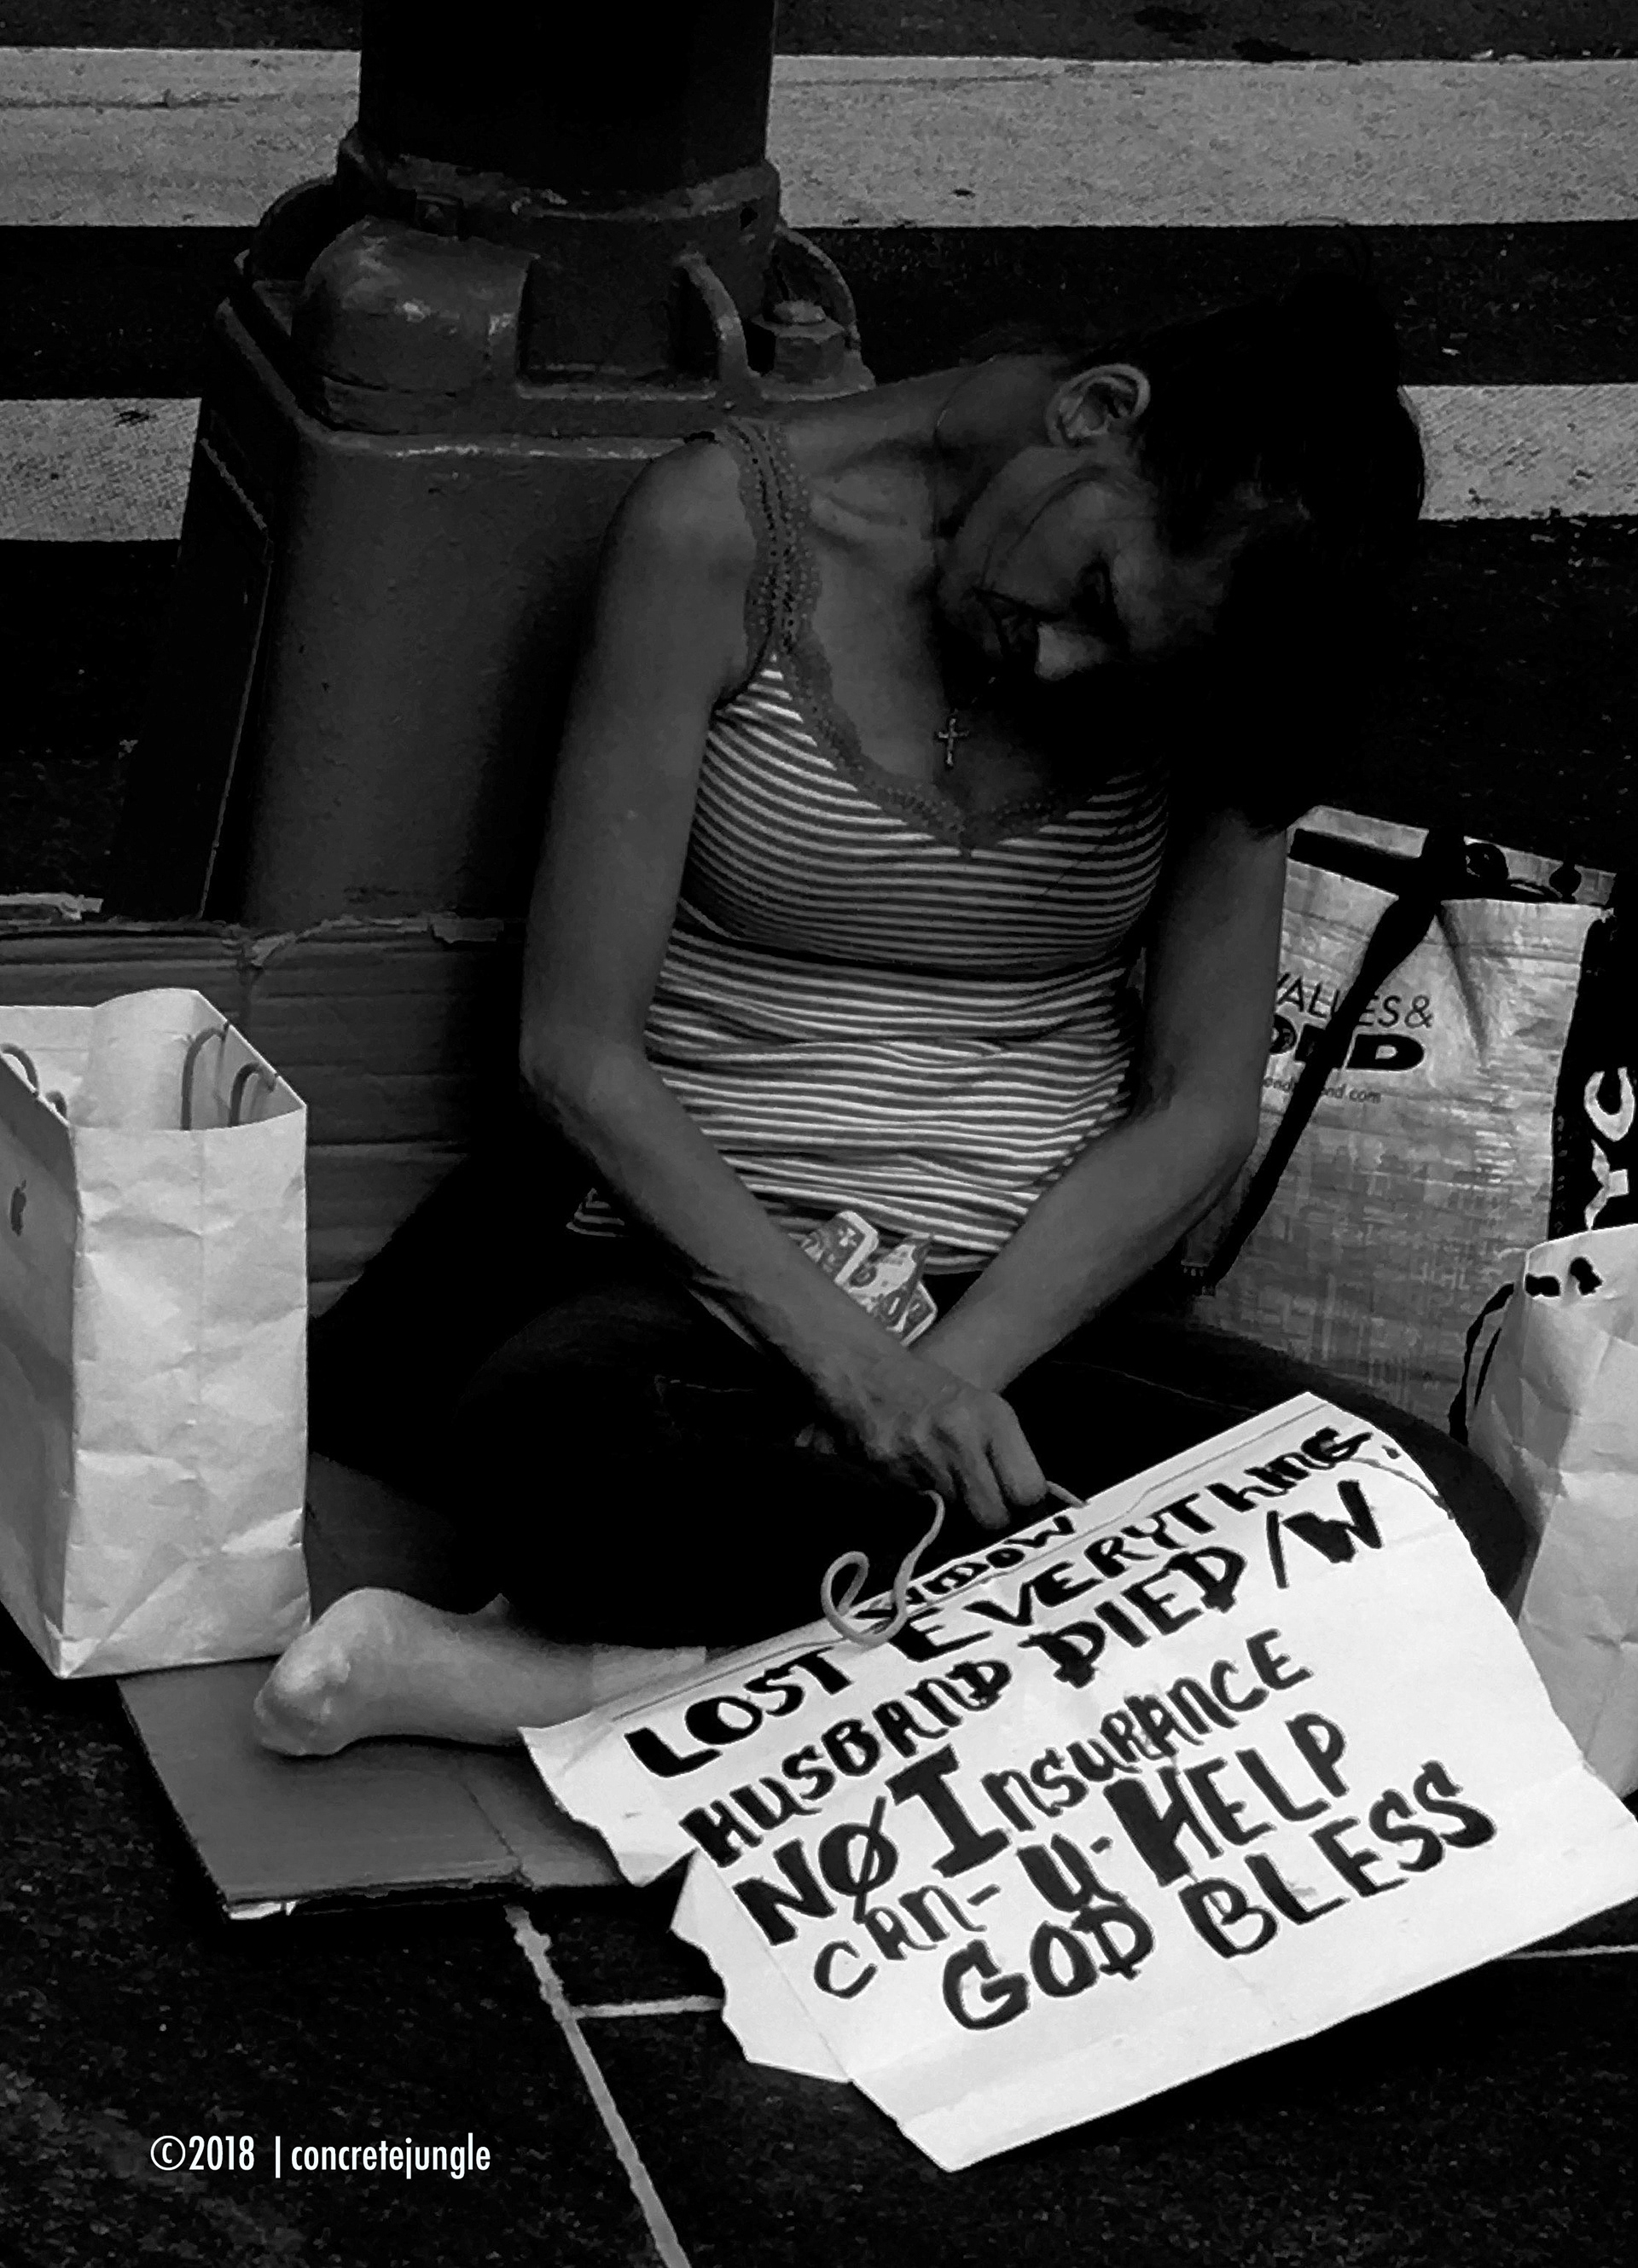 VALUES &
YC
WIDOW
LOST EVERYTHING.
HUSBAND DIED /W
NØ INSURANCE
CAN-U-HELP
GOD BLESS
©2018 | concretejungle